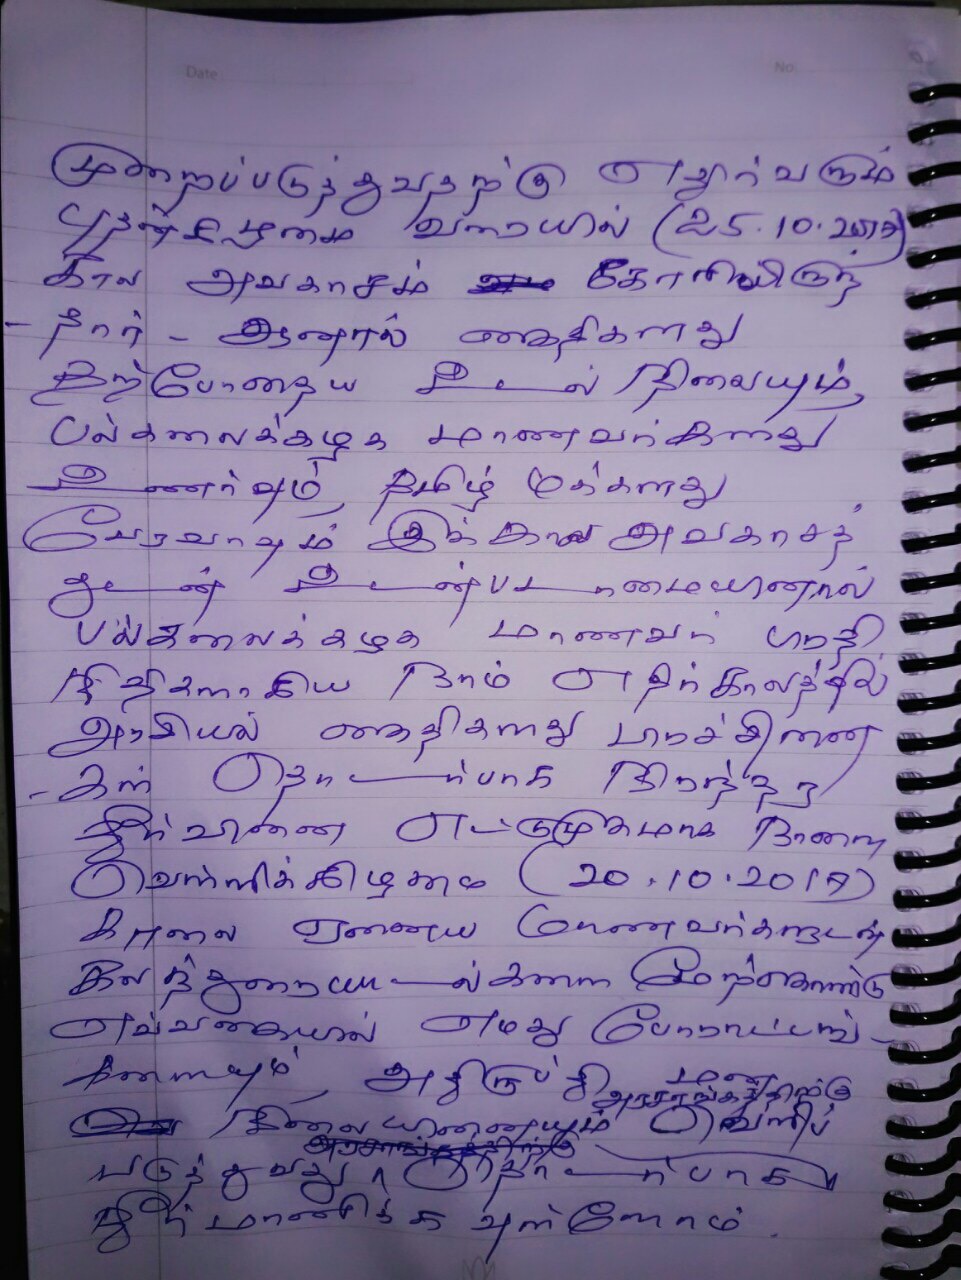 Date No
முறைப்படுத்துவதற்கு எதிர்வரும்
புதன்கிழமை வரையில் (25.10.2017)
கால அவகாசம் கோரியிருந்
- தார் - ஆனால் கைதிகளது
தற்போதைய உடல் நிலையும்,
பல்கலைக்கழக மாணவர்களது
உணர்வும், தமிழ் மக்களது
பேரவாவும் இக் கால அவகாசத்
துடன் உடன்படாமையினால்
பல்கலைக்கழக மாணவர் பிரதி
நிதிகளாகிய நாம் எதிர்காலத்தில்
அரசியல் கைதிகளது பிரச்சினை
- கள் தொடர்பாக நிரந்தர
தீர்வினை எட்டுமுகமாக நாளை
வெள்ளிக்கிழமை (20.10.2017)
காலை ஏனைய மாணவர்களுடன்
கலந்துரையாடல்களை மேற்கொண்டு
எவ்வகையில் எமது போராட்டங்
களையும், அதிருப்தி மன
அரசாங்கத்திற்கு
நிலையினையும் வெளிப்
படுத்துவது தொடர்பாக
தீர்மானிக்கவுள்ளோம்.